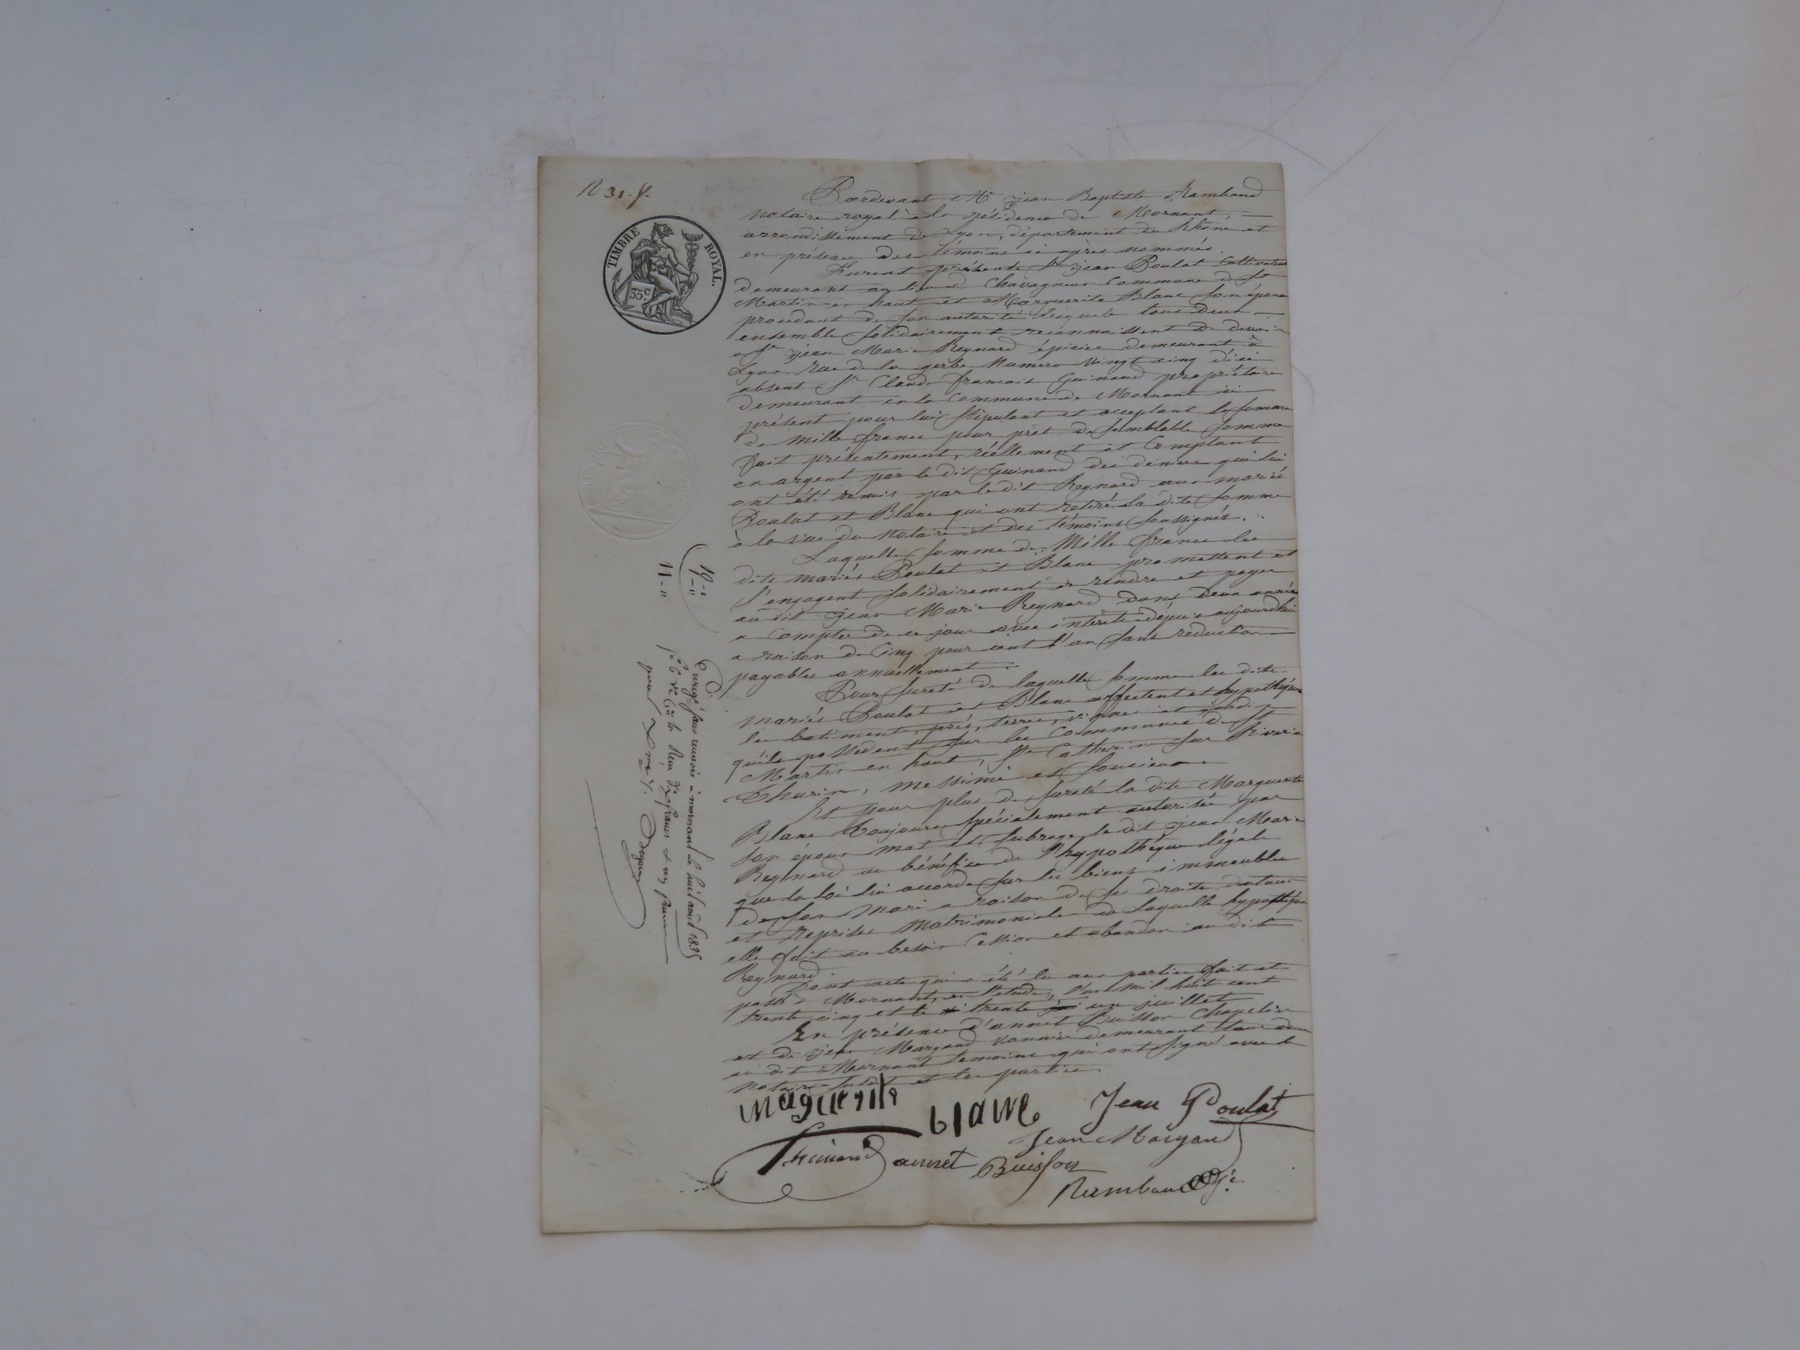 N 31. J.
TIMBRE ROYAL.
35 c
Pardevant Me jean Baptiste Rambaud
notaire royal à la résidence de Mornant
arrondissement de Lyon, département du Rhône et
en présence des témoins ci après nommés.
Furent présents Sr jean Poulat Cultivateur
demeurant au lieu de Chavagneux Commune de St
Martin en haut et Marguerite Blanc son épouse
procedant de son autorité lesquels tous deux
ensemble solidairement reconnaissent de devoir
a Sr jean Marie Reynard épicier demeurant à
Lyon rue de la gerbe Numero Vingt cinq d'ici
absent Sr Claude françois Guinand propriétaire
demeurant en la Commune de Mornant ici
présent pour lui stipulant et acceptant la somme
de Mille francs pour prêt de semblable somme
fait présentement, réellement et Comptant
en argent par le dit Guinand des deniers qui lui
ont été remis par le dit Reynard aux mariés
Poulat et Blanc qui ont retiré la dite somme
à la vue du notaire et des témoins soussignés.
Laquelle somme de Mille francs les
dits mariés Poulat et Blanc promettent et
s'engagent solidairement de rendre et payer
au dit jean Marie Reynard dans deux années
a Compter de ce jour avec intérêts dépuis aujourdhui
a raison de Cinq pour cent l'an sans réduction
payables annuellement.
Pour sureté de laquelle somme les dits
mariés Poulat et Blanc affectent et hypothèquent
les batiments, prés, terres, vignes et
qu'ils possedent sur les Communes de St
Martin en haut, Ste Catherine sur Riverie
Thurin, Messimi et Soucieux.
Et pour plus de sureté la dite Marguerite
Blanc toujours spécialement autorisée par
son époux met et subroge le dit jean Marie
Reynard au bénéfice de l'hypothèque légale
que la loi lui accorde sur les biens immeubles
de son Mari a raison de ses droits dotaux
et reprises matrimoniales de laquelle hypothèque
elle fait au besoin Cession et abandon au dit
Reynard.
Dont acte qui a été lu aux parties fait et
passé a Mornant, en l'étude, l'an mil huit cent
trente cinq et le trente un juillet
En présence d'annet Buisson Chapelier
et de jean Margand vannier demeurant tous deux
au dit Mornant témoins qui ont signé avec le
notaire et les parties.
Marguerite blanc Jean Poulat
Guinand annet Buisson Jean Margand
Rambaud
19-"
11-"
Enregé sans renvoi à mornant le huit août 1835
Reçu dix francs